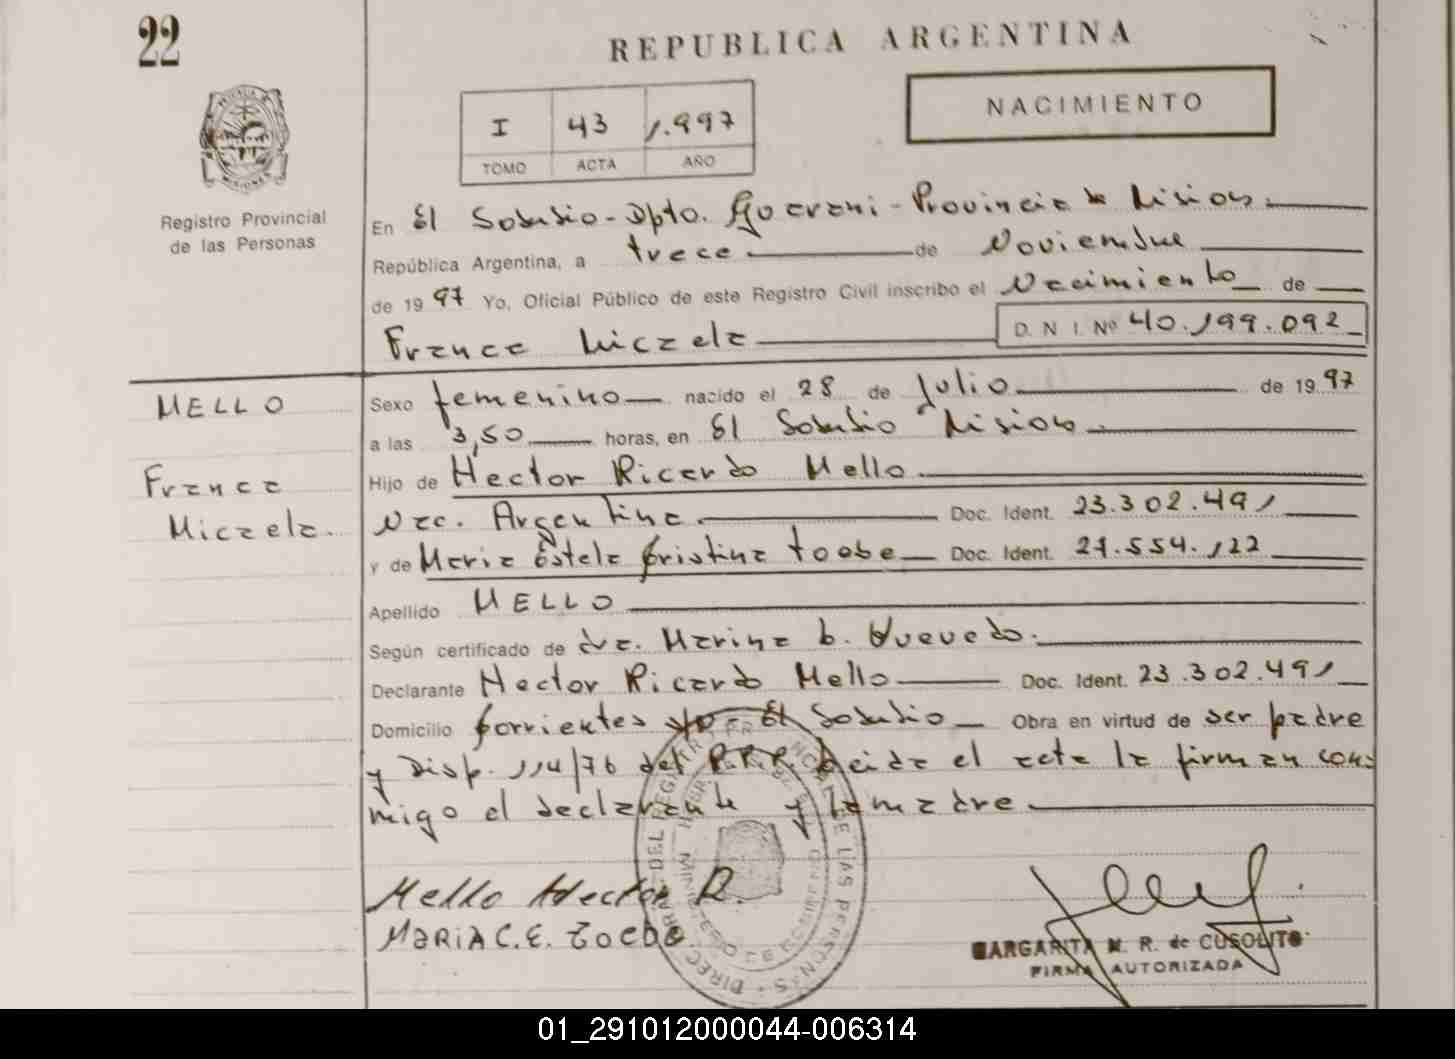 22
REPUBLICA ARGENTINA
NACIMIENTO
I 43 1.997
TOMO ACTA AÑO
Registro Provincial
de las Personas
En El Soberbio-Dpto. Guarani-Provincia de Misiones.
República Argentina, a trece de Noviembre
de 1997 Yo, Oficial Público de este Registro Civil inscribo el Nacimiento de
Franca Micaela D. N I. Nº 40.199.092
MELLO
Sexo femenino nacido el 28 de Julio de 1997
a las 3,50 horas, en El Soberbio Misiones.
Franca
Micaela.
Hijo de Hector Ricardo Mello.
Nac. Argentina. Doc. Ident. 23.302.491
y de Maria Estela Cristina Doc. Ident. 21.554.122
Apellido MELLO
Según certificado de dra. Marina b.
Declarante Hector Ricardo Mello Doc. Ident. 23.302.491
Domicilio Corrientes El Soberbio Obra en virtud de ser padre
y Disp. 114/76 del R.P.P. Leida el acta la firman con-
migo el declarante y la madre.
Mello Hector R.
MARIA C.E.
MARGARITA M. R. de CUSOLITO
FIRMA AUTORIZADA
01_291012000044-006314